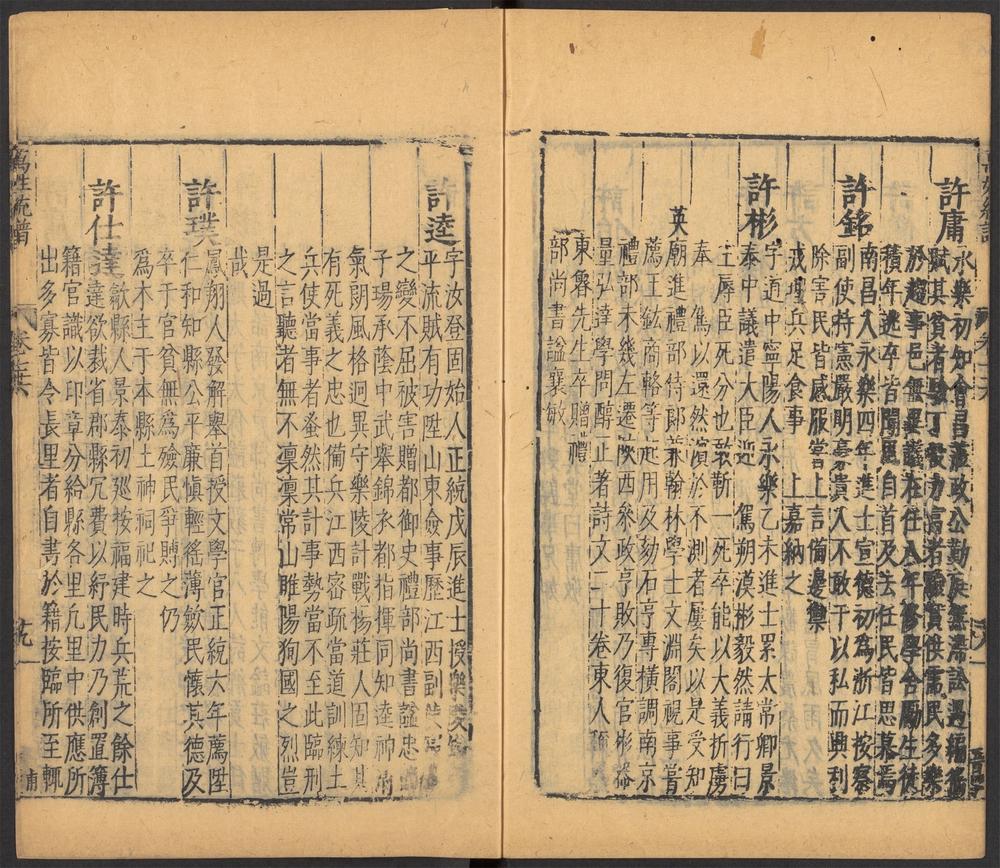 許庸
永樂初知會昌蒞政公勤庭無滯訟遇編徭
賦其貧者驗丁役力富者驗貲供需民多樂
於趨事邑無罪議在任八年修學舍勵生徒
積年逃卒皆聞風自首及去任民皆思慕焉
許銘
南昌人永樂四年進士宣德初為浙江按察
副使持憲嚴明豪貴人不敢干以私而興利
除害民皆感服嘗上言備邊禦
戎壇兵足食事 上嘉納之
許彬
字道中寧陽人永樂乙未進士累太常卿景
泰中議遣大臣迎 駕朔漠彬毅然請行曰
主辱臣死分也敢靳一死卒能以大義折虜
奉 駕以還然濱於不測者屢矣以是受知
英廟進禮部侍郎兼翰林學士文淵閣視事嘗
薦王鉉商輅等起用及劾石亨專橫調南京
禮部未幾左遷陝西參政亨敗乃復官彬器
量弘達學問醇正著詩文二十卷東人稱
東魯先生卒贈禮
部尚書謚襄敏
許逵
字汝登固始人正統戊辰進士授樂陵
平流賊有功陞山東僉事歷江西副使
之變不屈被害贈都御史禮部尚書謚忠
子瑒承蔭中武舉錦衣都指揮同知逵神
氣朗風格迥異守樂陵計戰楊莊人固知其
有死義之忠也備兵江西密疏當道訓練士
兵使當事者蚤然其計事勢當不至此臨刑
之言聽者無不凜凜常山睢陽狥國之烈豈
是過
哉
許璞
鳳翔人發解舉首授文學官正統六年薦陞
仁和知縣公平廉慎輕徭薄斂民懷其德及
卒于官貧無為殮民爭賻之仍
為木主于本縣土神祠祀之
許仕達
歙縣人景泰初廵按福建時兵荒之餘仕
達欲裁省郡縣冗費以紓民力乃創置簿
籍官識以印章分給縣各里凢里中供應所
出多寡皆令長里者自書於籍按臨所至輒
萬姓統譜